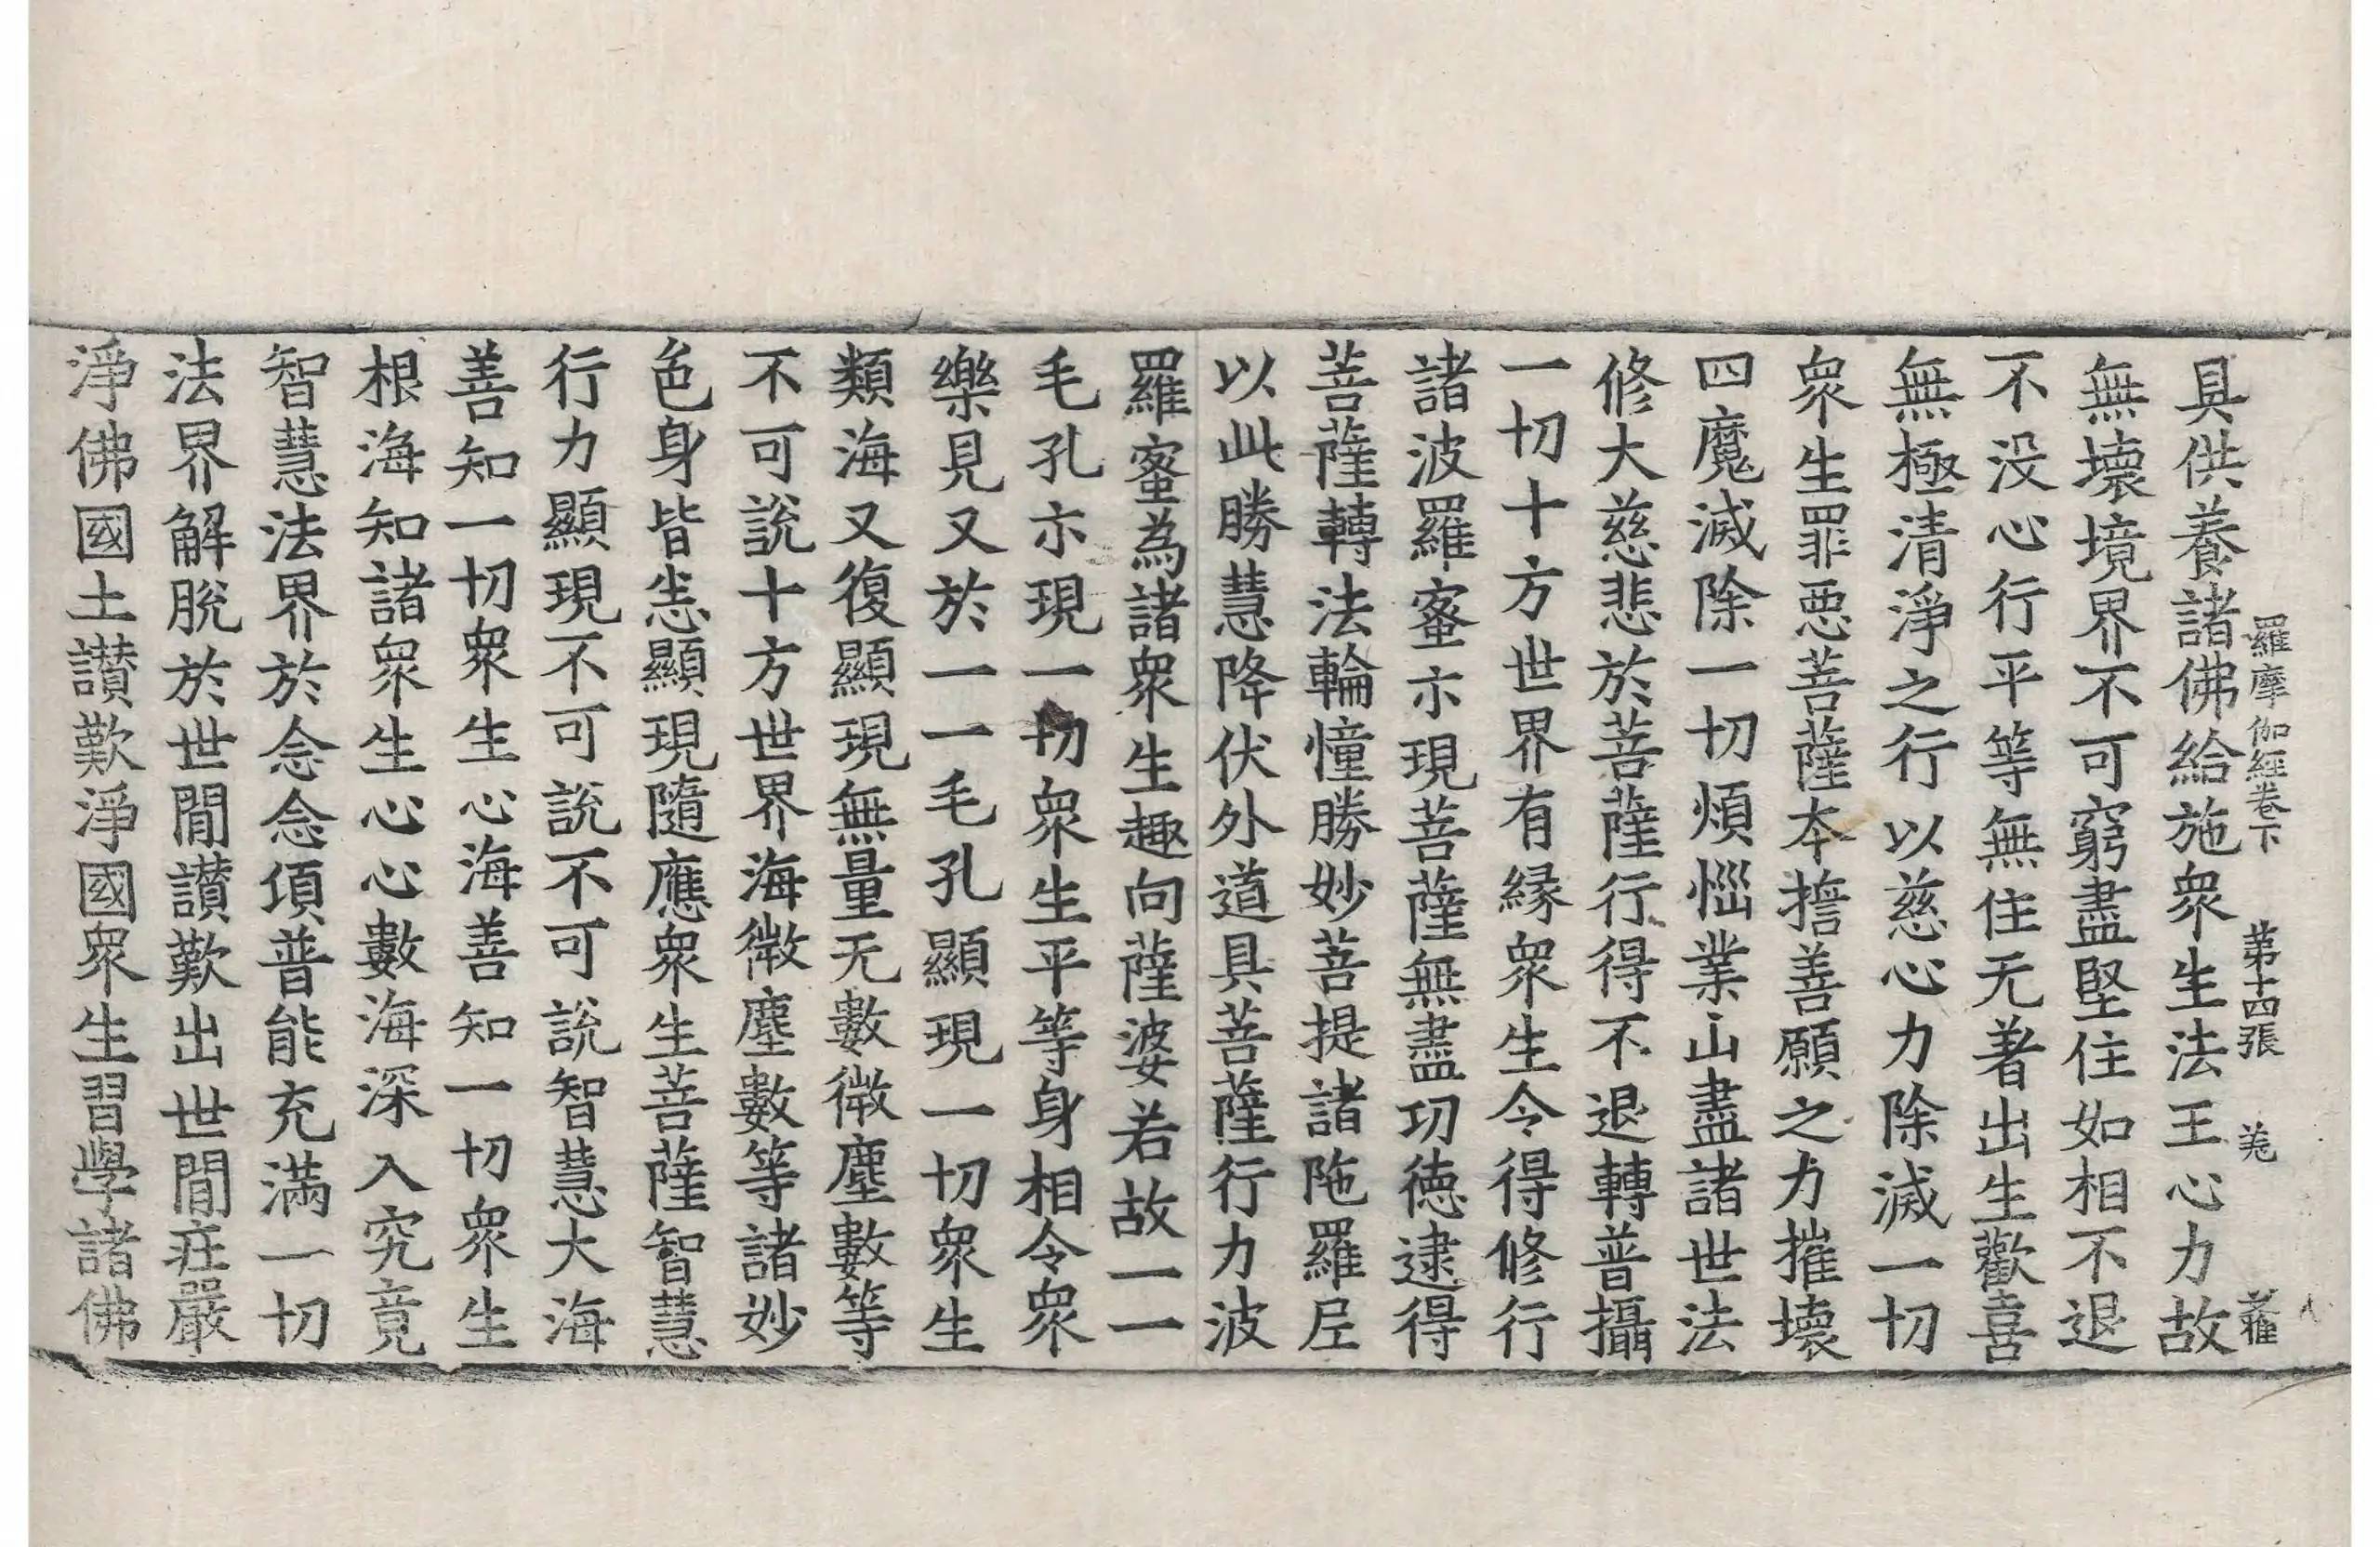 羅摩伽經卷下 第十四張 羌
具供養諸佛給施衆生法王心力故
無壞境界不可窮盡堅住如相不退
不没心行平等無住无著出生歡喜
無極清淨之行以慈心力除滅一切
衆生罪惡菩薩本擔善願之力摧壞
四魔滅除一切煩惱業山盡諸世法
修大慈悲於菩薩行得不退轉普攝
一切十方世界有縁衆生令得修行
諸波羅蜜亦現菩薩無盡功德逮得
菩薩轉法輪憧勝妙菩提諸陁羅尼
以此勝慧降伏外道具菩薩行力波
羅蜜為諸衆生趣向薩婆若故一一
毛孔亦現一切衆生平等身相令衆
樂見又於一一毛孔顯現一切衆生
類海又復顯現無量无數微塵數等
不可説十方世界海微塵數等諸妙
色身皆悉顯現隨應衆生菩薩智慧
行力顯現不可説不可説智慧大海
善知一切衆生心海善知一切衆生
根海知諸衆生心心數海深入究竟
智慧法界於念念頃普能充滿一切
法界解脱於世間讃歎出世間莊嚴
淨佛國土讃歎淨國衆生習學諸佛